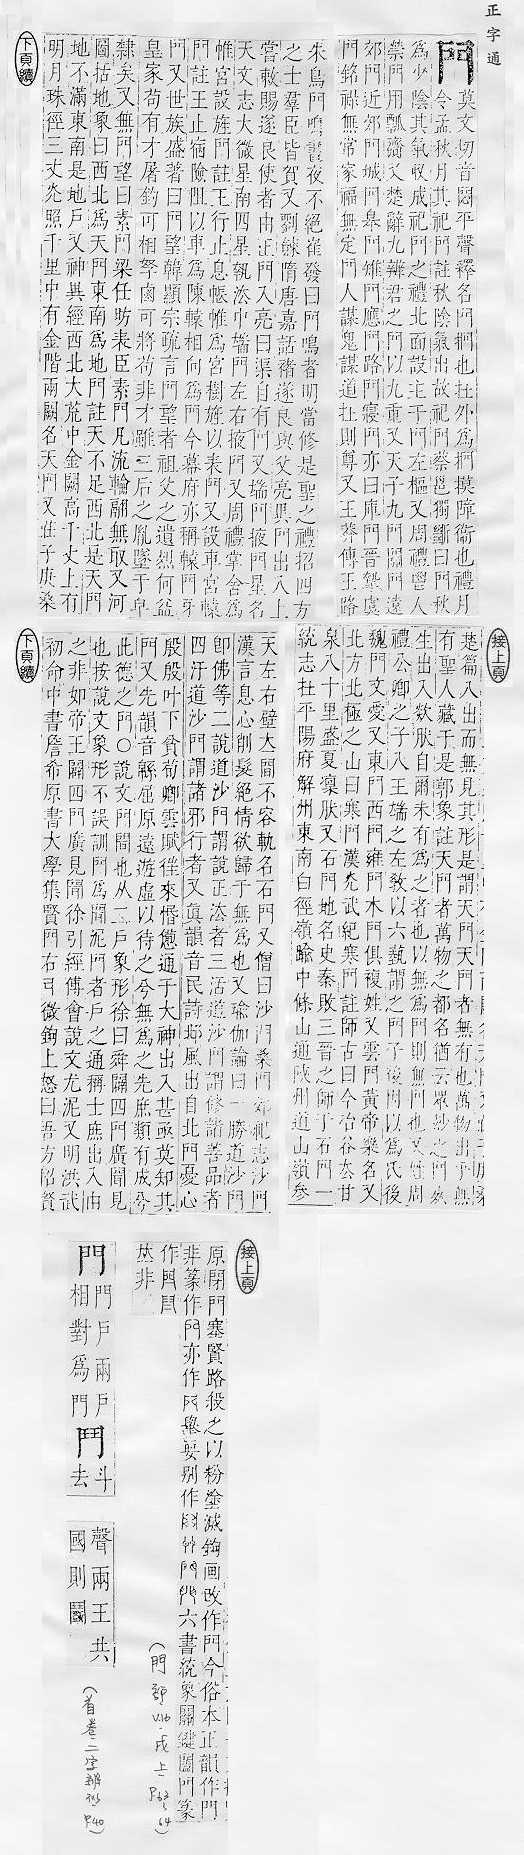 正字通
門
莫文切音悶平聲釋名門捫也在外爲捫摸障衛也禮月
令孟秋月其祀門註秋陰氣出故祀門蔡邕獨斷曰門秋
爲少陰其氣收成祀門之禮北面設主于門左樞又周禮鬯人
禜門用瓢齎又楚辭九辯君之門以九重又天子九門關門遠
郊門近郊門城門臯門雉門應門路門寢門亦曰庫門晉摯虞
門銘祿無常家福無定門人謀鬼謀道在則尊又王莽傳王路
朱鳥門鳴晝夜不絕崔發曰門鳴者明當修先聖之禮招四方
之士羣臣皆賀又劉餗隋唐嘉話褚遂良與父亮異門出入上
嘗敕賜遂良使者由正門入亮曰渠自有門又端門掖門星名
天文志大微星南四星執法中端門左右掖門又周禮掌舍爲
帷宮設旌門註王行止息帳帷爲宮樹旌以表門又設車宮轅
門註王止宿險阻以車爲陳轅相向爲門今幕府亦稱轅門牙
門又世族盛著曰門望韓顯宗疏言門望者祖父之遺烈何益
皇家苟有才屠釣可相孥鹵可將苟非才雖三后之胤墜于皁
隸矣又無門望曰素門梁任昉表臣素門凡流輪翮無取又河
圖括地象曰西北爲天門東南爲地門註天不足西北是天門
地不滿東南是地戶又神異經西北大荒中金闕高千丈上有
明月珠徑三丈光照千里中有金階兩闕名天門又莊子庚桑
下頁續
接上頁
楚篇入出而無見其形是謂天門天門者無有也萬物出乎無
有聖人藏于是郭象註天門者萬物之都名猶云眾妙之門矣
生出入欻肰自爾未有爲之者也以無爲門則無門也又姓周
禮公卿之子入王端之左敎以六蓺謂之門子後因以爲氏後
魏門文愛又東門西門雍門木門俱複姓又雲門黃帝樂名又
北方北極之山曰寒門漢光武紀寒門註師古曰今冶谷去甘
泉八十里盛夏凜肰又石門地名史秦敗三晉之師于石門一
統志在平陽府解州東南白徑嶺踰中條山通陝州道山嶺參
天左右壁立間不容軌名石門又僧曰沙門桑門郊祀志沙門
漢言息心削髮絕情欲歸于無爲也又瑜伽論曰一勝道沙門
卽佛等二說道沙門謂說正法者三活道沙門謂修諸善品者
四汙道沙門謂諸邪行者又眞韻音民詩邶風出自北門憂心
殷殷叶下貧荀卿雲賦往來惛憊通于大神出入甚亟莫知其
門又先韻音緜屈原遠遊虛以待之今無爲之先庶類有成兮
此德之門○說文門聞也从二戶象形徐曰舜闢四門廣聞見
也按說文象形不誤訓門爲聞泥門者戶之通稱士庶出入由
之非如帝王闢四門廣見聞徐引經傅會說文尤泥又明洪武
初命中書詹希原書大學集賢門右丨微鉤上怒曰吾方招賢
下頁續
接上頁
原閉門塞賢路殺之以粉塗滅鉤画改作門今俗本正韻作門
作
非
門門戶兩戶
相對爲門鬥斗
去
聲兩王共
國則鬪
(門部 戌上 P63~64)
(首卷二字辨似 P40)